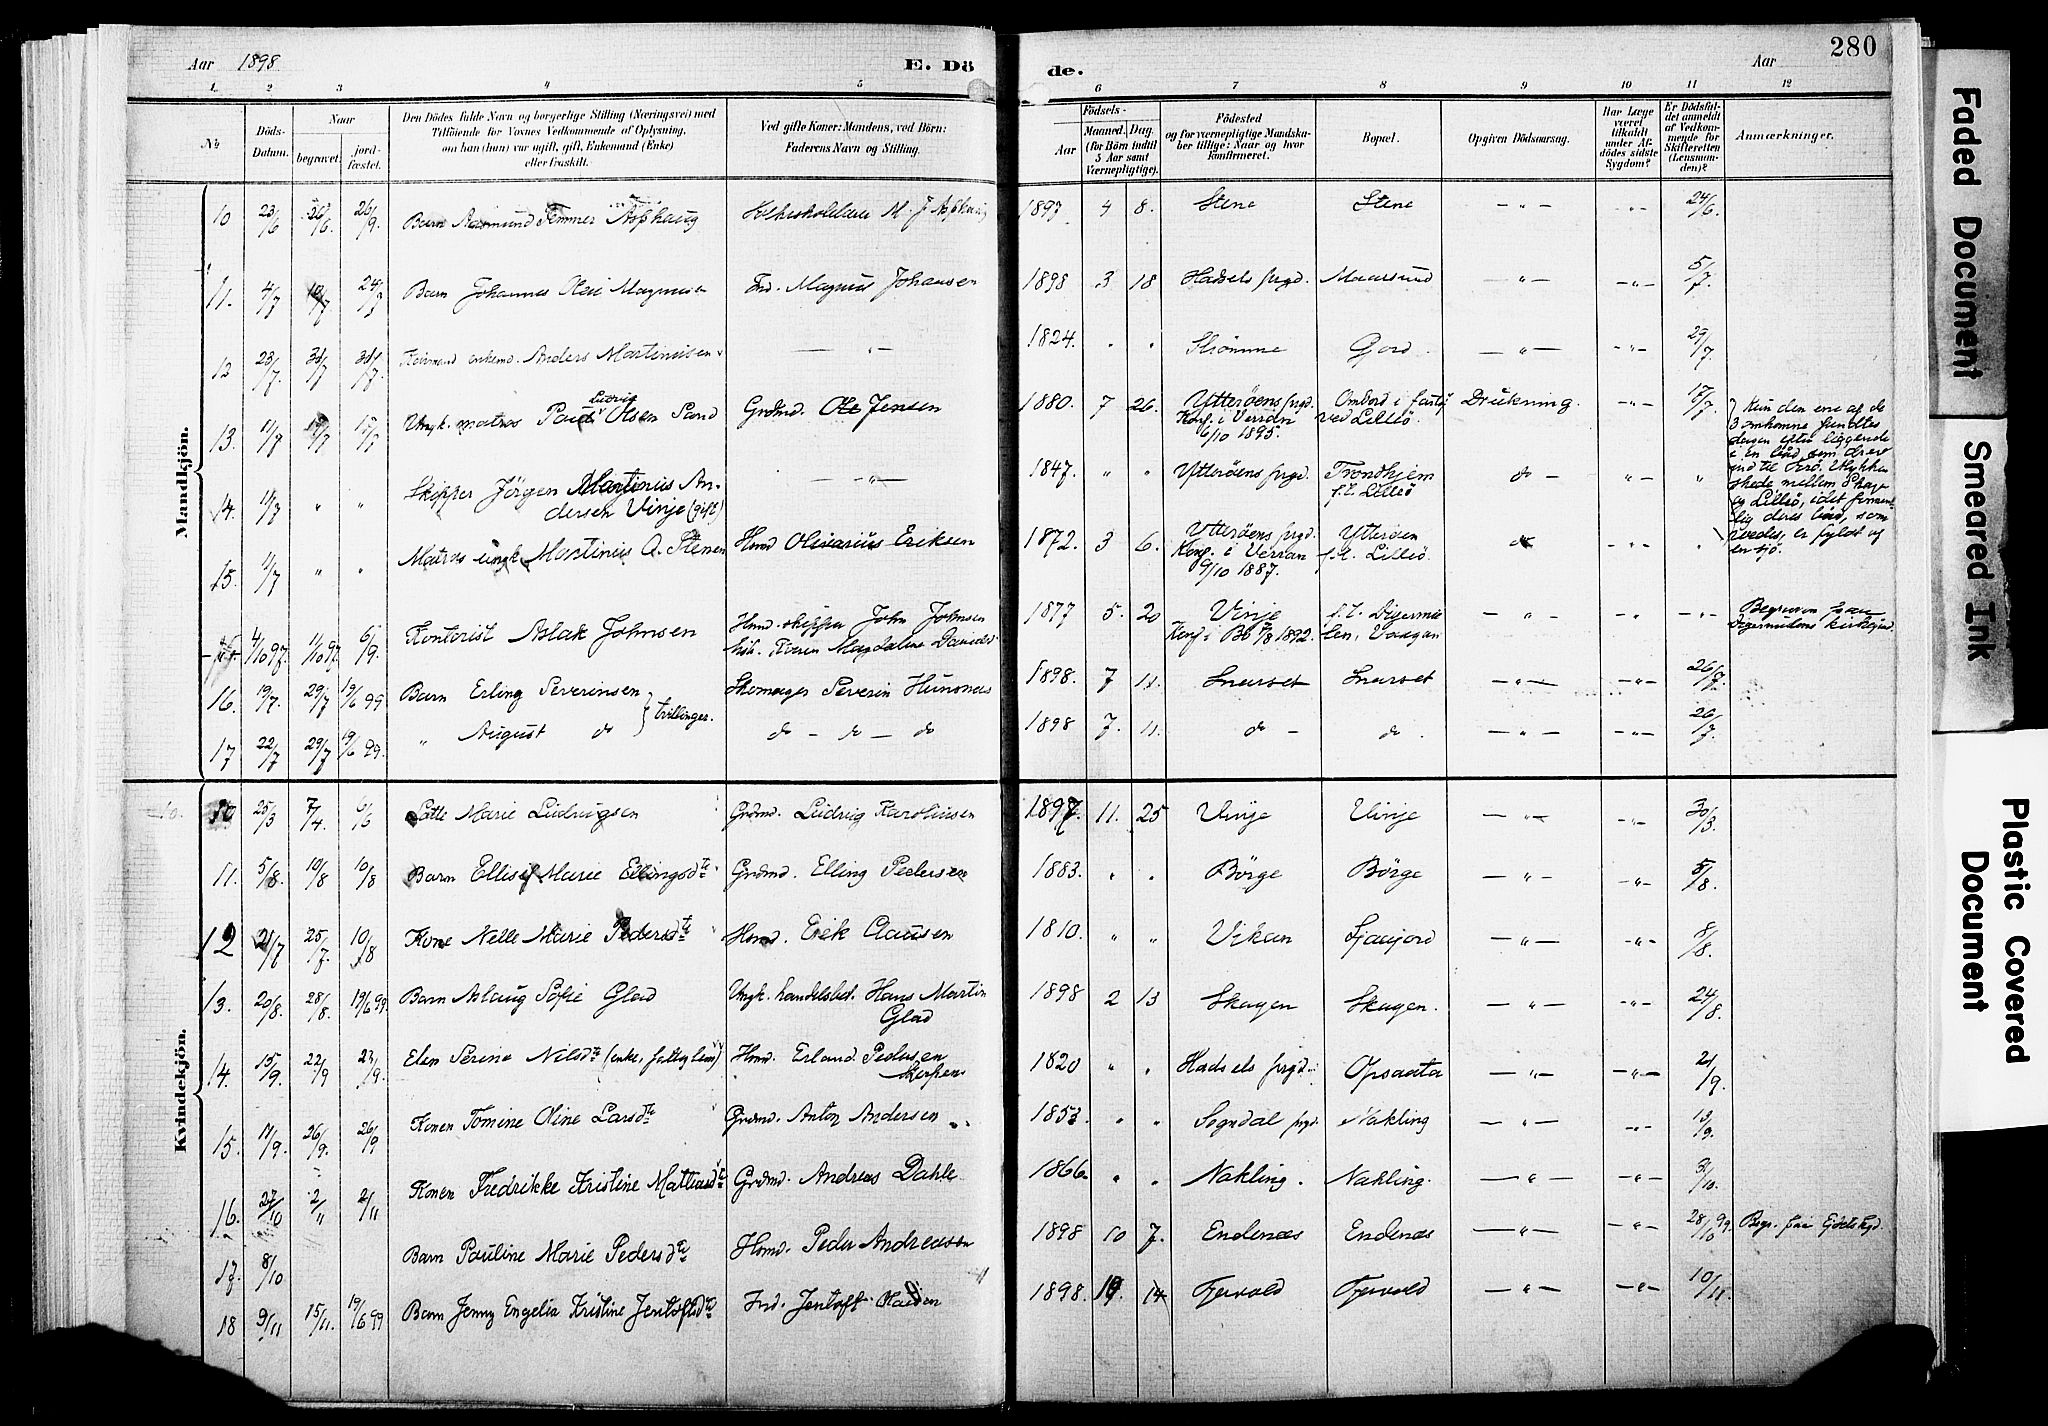 Aar 1898.
E. Dö
de.
Aar
280
1. 2 3 4 5
6 7 8 9 10 11 12
No
Döds-Datum.
Naar
begravet.
jord-fæstet.
Den Dödes fulde Navn og borgerlige Stilling (Næringsvei) med
Tilföiende for Voxnes Vedkommende af Oplysning,
om han (hun) var ugift, gift, Enkemand (Enke)
eller fraskilt.
Ved gifte Koner: Mandens, ved Börn:
Faderens Navn og Stilling.
Födsels-
Aar
Maaned. Dag.
(for Börn indtil
5 Aar samt
Værnepligtige).
Födested
og for værnepligtige Mandska-
ber tillige: Naar og hvor
konfirmeret.
Bopæl.
Opgiven Dödsaarsag.
Har Læge
været
tilkaldt
under Af-
dödes sidste
Sygdom?
Er Dödsfal-
det anmeldt
af Vedkom-
mende for
Skifteretten
(Lensman-
den)?
Anmærkninger.
Mandkjön.
10 23/6 26/6 26/9 Barn Aasmund Asphaug M. J. Asphaug 1897 4 8. Stene Stene — " — " 24/6.
11. 4/7 10/7 24/7 Barn Johannes Olai Magnusen Ind. Magnus Johansen 1898 3 18 Hadsels prgd. Maarsund — " — - " - 5/7.
12 23/7. 31/7 31/7. enkemd. Anders Martinusen — " — 1824. " " Strömme Gjord. — " — - " - 29/7.
13. 11/7 17/7 17/7 Ungk. matros Paul Ludvig Olsen Sand Grdmd. Ole Jensen 1880. 7 26. Ytteröens prgd. Ombord i
Konf. i Verran ved Lilleö
6/10 1895.
Drukning. - " - 17/7.
Kun den ene af de
3 omkomne fandtes
dagen efter liggende
i en båd, som drev
ind til
skede mellem Skage
og Lilleö, idet
lig deres båd, som
er fyldt af
en sjö.
14. 11/7 " " Skipper Jörgen Martinus An-
dersen Vinje (gift) — " — 1847. " " Ytteröens prgd. Trondhjem
f. t. Lilleö do — - " - "
15. 11/7 " " Matros ungk Martinus O. Stenen Hmd Olivarius Eriksen 1872. 3 6. Ytteröens prgd. Ytteröen
Konf. i Verran f. t. Lilleö
9/10 1887.
do " "
4/10 97. 11/10 97. 6/9. Kontorist Aslak Johnsen Hmd. skipper John Johnsen
Karen Magdalene 1877 5. 20 Vinje f. t. Digermu-
Konf. i Bö 1892. len i Vaagan — " — — " —
Begraven paa
Digermulens kirkegd.
16. 19/7. 29/7 19/6 99 Barn Erling Severinsen } tvillinger. Skomager Severin Hunsnes 1898. 7 11. Snarset Snarset — " — - " - 26/7.
17 22/7 29/7 19/6 99. " August do do — do — do 1898 7. 11. do — do. — " — - " - 26/7.
Kvindekjön.
10. 10 25/3 7/4. 6/6 Marie Ludvigsen Grdmd. Ludvig Karolinsen 1897. 11. 25 Vinje Vinje — " — - " - 30/3.
11. 5/8. 10/8 10/8 Barn Ellisif Marie Ellingsdtr Grdmd. Elling Pedersen 1883. " " Börge Börge — " — - " - 5/8.
12 21/7 25/7. 10/8 Kone Nelle Marie Pedersdtr Hmd. Erik Clausen 1810. " " Vikan — " — - " - 8/8.
13. 20/8. 28/8. 19/6 99. Barn Aslaug Sofie Glad Ungk. handelsbet. Hans Martin
Glad 1898 2 13 Skagen Skagen. — " — - " - 24/8.
14. 15/9. 22/9 23/9. Elen Serine Nilsdtr (enke, fattiglem) Hmd. Erland Pedersen 1820 " " Hadsels prgd. Opsaata — " — - " - 21/9.
15. 19/9. 26/9. 26/9 Konen Tomine Oline Larsdtr Grdmd. Anton Andersen 1853 " " Sogndal prgd. Nakling — " — - " - 19/9.
16. 27/10 2/11 2/11 Konen Fredrikke Kristine Mattiasdtr Grdmd. Andreas Dahle 1866. " " Nakling. Nakling. — " — - " - 31/10.
17. 8/10 Barn Pauline Marie Pedersdtr Hmd. Peder Andreasen 1898 10 7. Endenæs Endenæs — " — - " - 28/10 99. Begr. paa
18 9/11 15/11. 19/6 99 Barn Jenny Engelia Kristine Jentoftsdtr Ind. Jentoft Olaisen 1898. 10. 14 Fjervold Fjervold — " — - " - 10/11.
Faded Document
Smeared Ink
Plastic Covered
Document